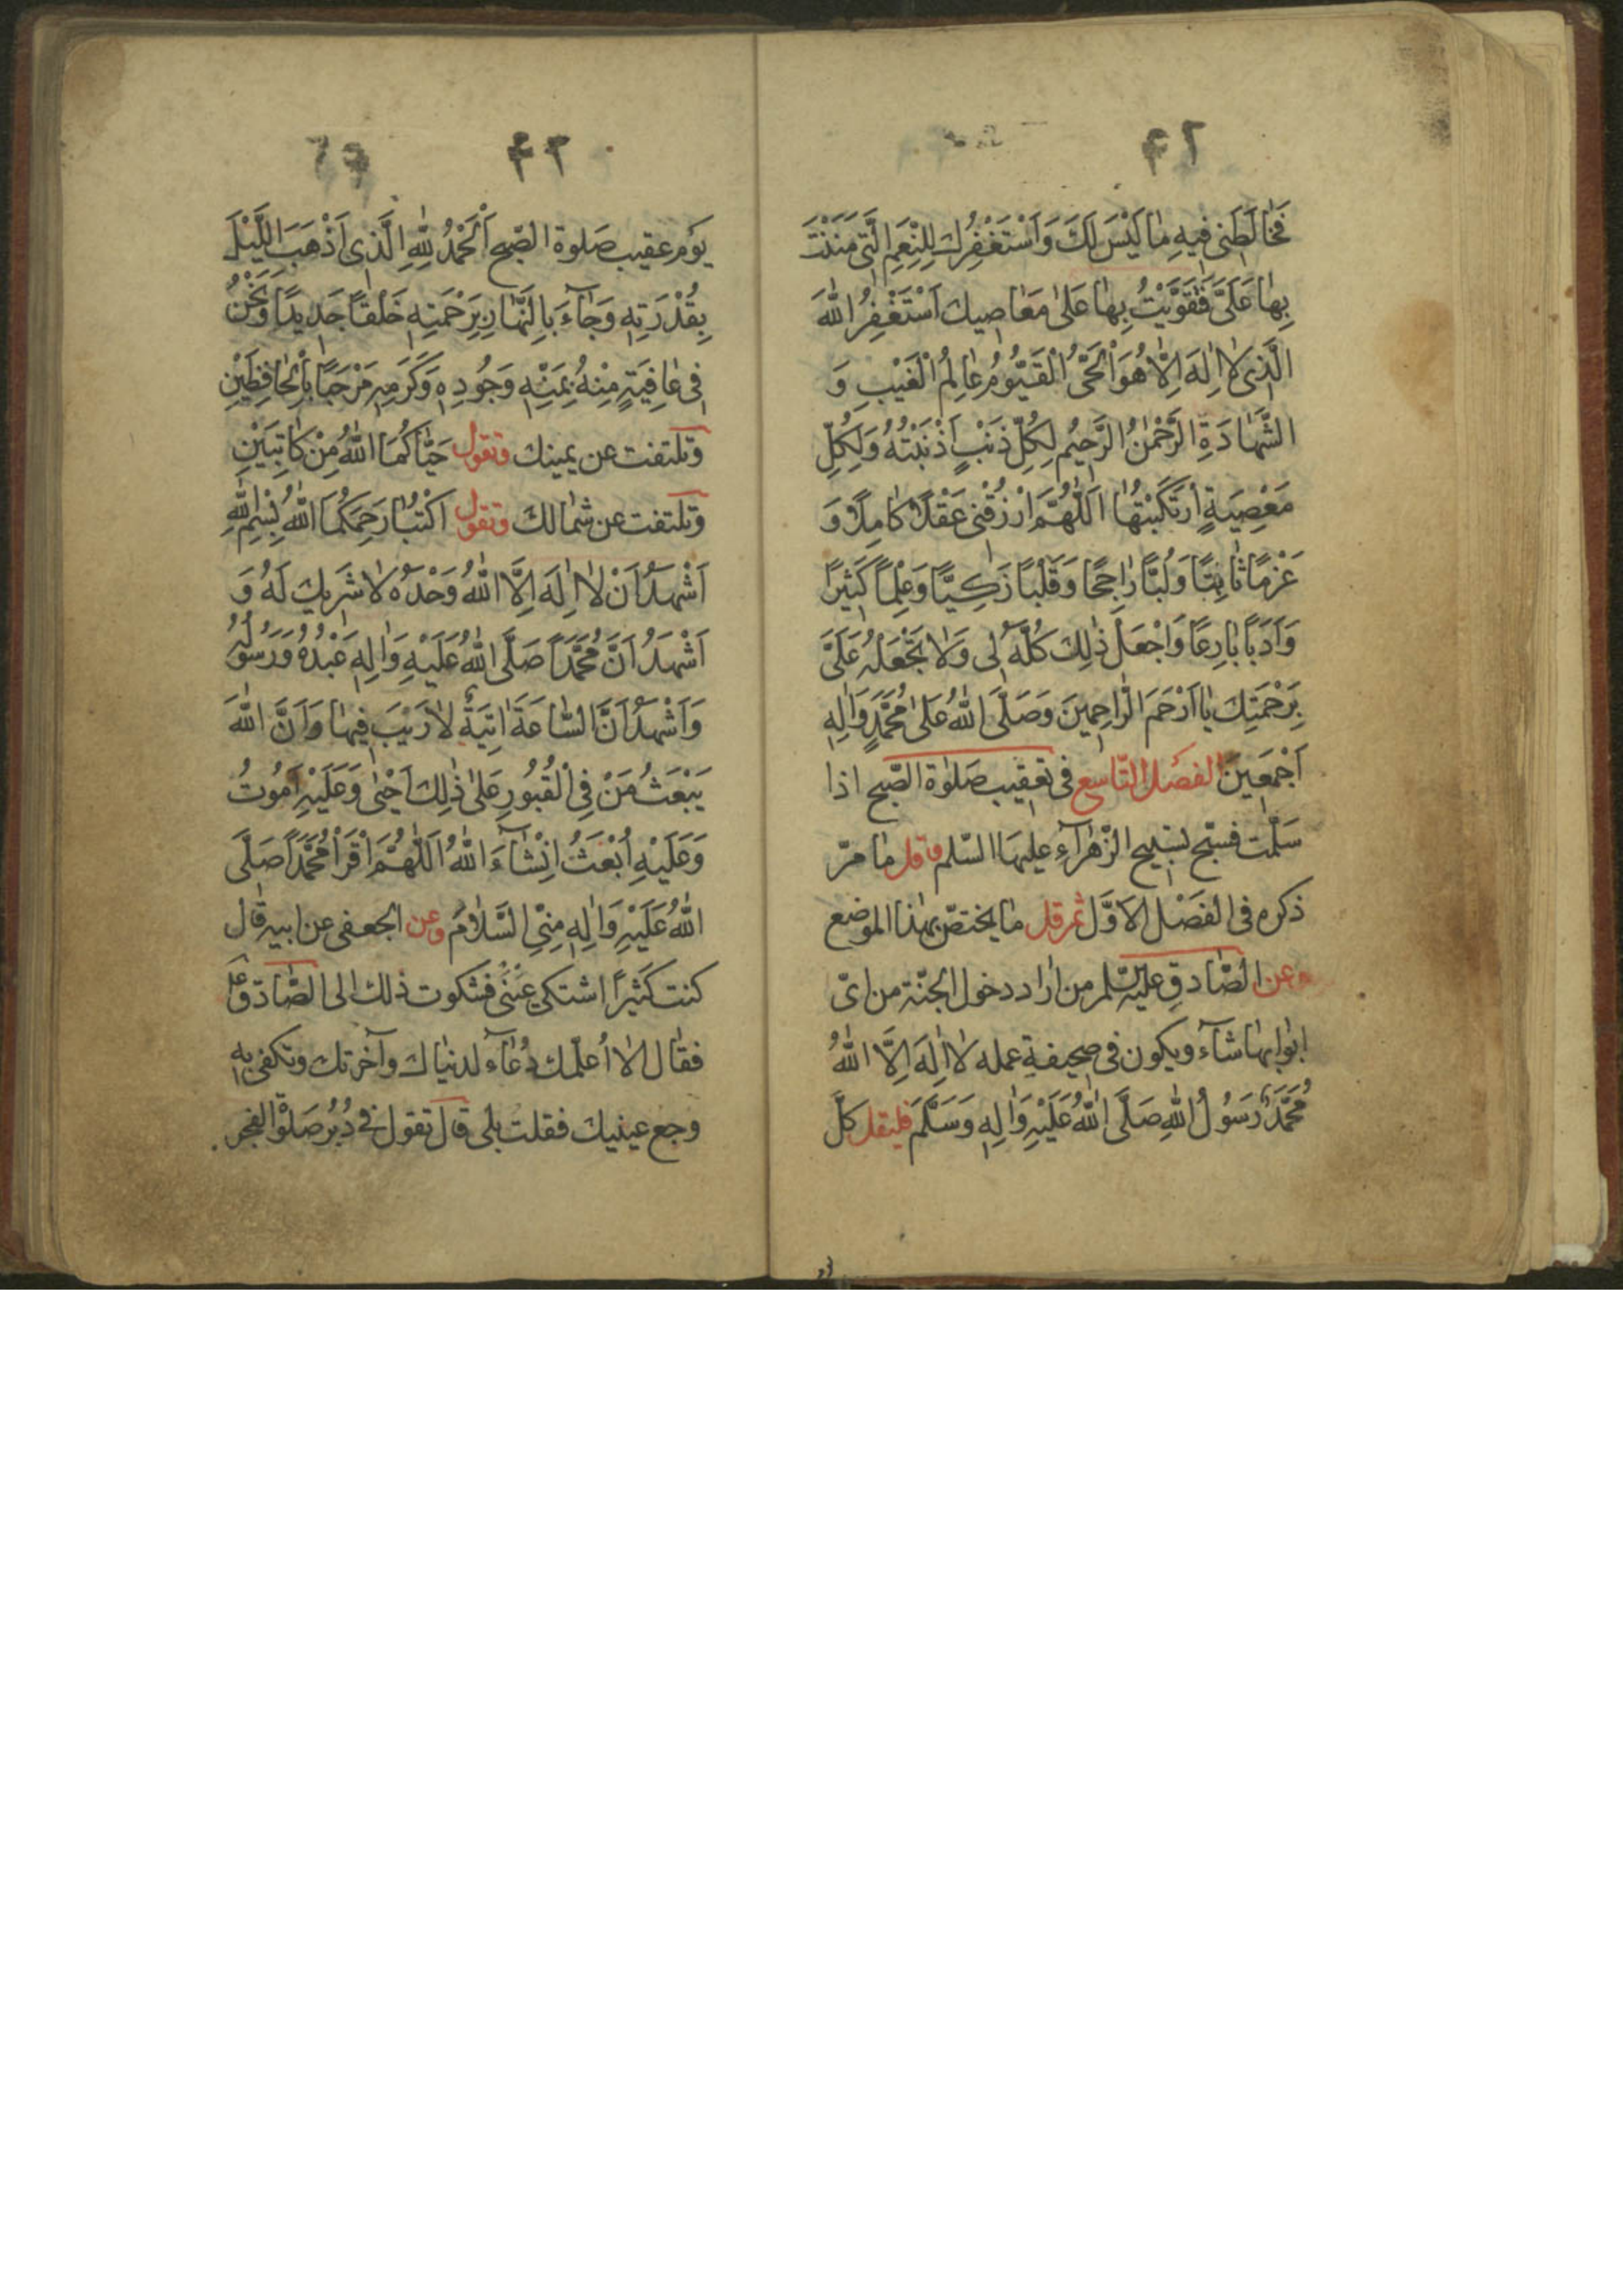 فَخٰالَطَنى فيهِ مٰا لَيْسَ لَكَ وَ اَسْتَغْفِرُكَ لِلنِّعَمِ الَّتى مَنَنْتَ
بِهٰا عَلَىَّ فَقَوَّيْتُ بِهٰا عَلىٰ مَعٰاصيكَ اَسْتَغْفِرُ اللّٰهَ
الَّذى لٰا اِلٰهَ اِلّٰا هُوَ الْحَىُّ الْقَيُّومُ عٰالِمُ الْغَيْبِ وَ
الشَّهٰادَةِ الرَّحْمٰنُ الرَّحيمُ لِكُلِّ ذَنْبٍ اَذْنَبْتُهُ وَ لِكُلِّ
مَعْصِيَةٍ ارْتَكَبْتُهٰا اَللّٰهُمَّ ارْزُقْنى عَقْلًا كٰامِلًا وَ
عَزْمًا ثٰابِتًا وَ لُبًّا رٰاجِحًا وَ قَلْبًا زَكِيًّا وَ عِلْمًا كَثيرًا
وَ اَدَبًا بٰارِعًا وَ اجْعَلْ ذٰلِكَ كُلَّهُ لى وَ لٰا تَجْعَلْهُ عَلَىَّ
بِرَحْمَتِكَ يٰا اَرْحَمَ الرّٰاحِمينَ وَ صَلَّى اللّٰهُ عَلىٰ مُحَمَّدٍ وَ اٰلِهِ
اَجْمَعينَ الفصل التّاسع فى تعقيب صلوٰة الصّبح اذا
سَلّمت فسبّح تسبيح الزّهرٰآءِ عليهَا السّلم و قل مٰا مرّ
ذكره فى الفصْل الاَوَّل ثم قل مٰا يختصّ بهٰذا الموضع
وعن الصّٰادقِ عليه السّلم من ارٰاد دخول الجنّة من اىّ
ابوٰابهٰا شآء و يكون فى صحيفة عمله لٰا اِلٰهَ اِلَّا اللّٰهُ
مُحَمَّدٌ رَسُولُ اللّٰهِ صَلَّى اللّٰهُ عَلَيْهِ وَ اٰلِهِ وَ سَلَّمَ فليقل كلّ
يَوْم عقيب صَلوة الصّبح اَلْحَمْدُ لِلّٰهِ الَّذى اَذْهَبَ اللَّيْلَ
بِقُدْرَتِهِ وَ جٰآءَ بِالنَّهٰارِ بِرَحْمَتِهِ خَلْقًا جَديدًا وَ نَحْنُ
فى عٰافِيَةٍ مِنْهُ بِمَنِّهِ وَ جُودِهِ وَ كَرَمِهِ مَرْحَبًا بِالْحٰافِظَيْنِ
وتلتفت عن يمينك وتقول حَيّٰاكُمَا اللّٰهُ مِنْ كٰاتِبَيْنِ
وتلتفت عن شمٰالك وتقول اكْتُبٰا رَحِمَكُمَا اللّٰهُ بِسْمِ اللّٰهِ
اَشْهَدُ اَنْ لٰا اِلٰهَ اِلَّا اللّٰهُ وَحْدَهُ لٰا شَريكَ لَهُ وَ
اَشْهَدُ اَنَّ مُحَمَّدًا صَلَّى اللّٰهُ عَلَيْهِ وَ اٰلِهِ عَبْدُهُ وَ رَسُولُهُ
وَ اَشْهَدُ اَنَّ السّٰاعَةَ اٰتِيَةٌ لٰا رَيْبَ فيهٰا وَ اَنَّ اللّٰهَ
يَبْعَثُ مَنْ فِى الْقُبُورِ عَلىٰ ذٰلِكَ اَحْيىٰ وَ عَلَيْهِ اَمُوتُ
وَ عَلَيْهِ اُبْعَثُ اِنْشٰآءَ اللّٰهُ اَللّٰهُمَّ اقْرَأْ مُحَمَّدًا صَلَّى
اللّٰهُ عَلَيْهِ وَ اٰلِهِ مِنِّى السَّلٰامَ وعن الجعفى عن ابيه قٰال
كنت كَثيرًا اشتكى عَيْنَى فشكوت ذلك الى الصّٰادق ع
فقٰال الٰا اُعلّمك دُعٰآء لدنيٰاك وآخرتك وتكفى به
وجع عينيك فقلت بلى قال تقول فى دُبُر صَلٰوة الفجر